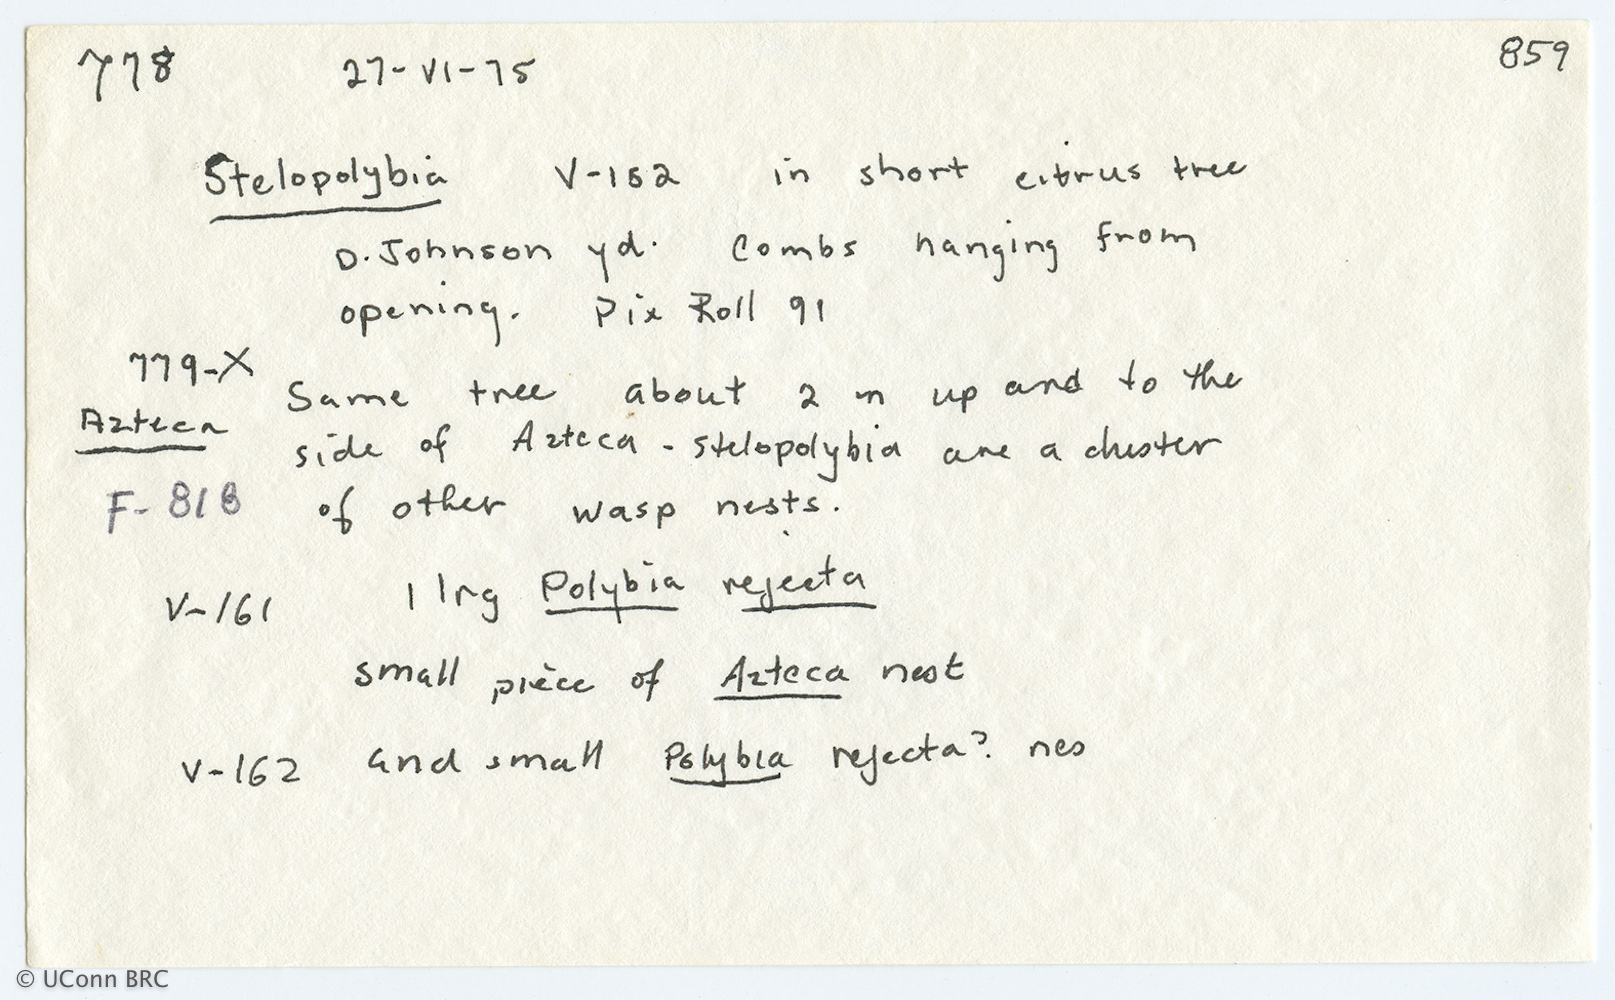 778 27-VI-75 859
Stelopolybia V-152 in short citrus tree
D. Johnson yd. Combs hanging from
opening. Pix Roll 91
779-X
Same tree about 2 m up and to the
Azteca
side of Azteca - Stelopolybia are a cluster
F-818 of other wasp nests.
V-161 1 lrg Polybia rejecta
small piece of Azteca nest
V-162 and small Polybia rejecta? nes
© UConn BRC